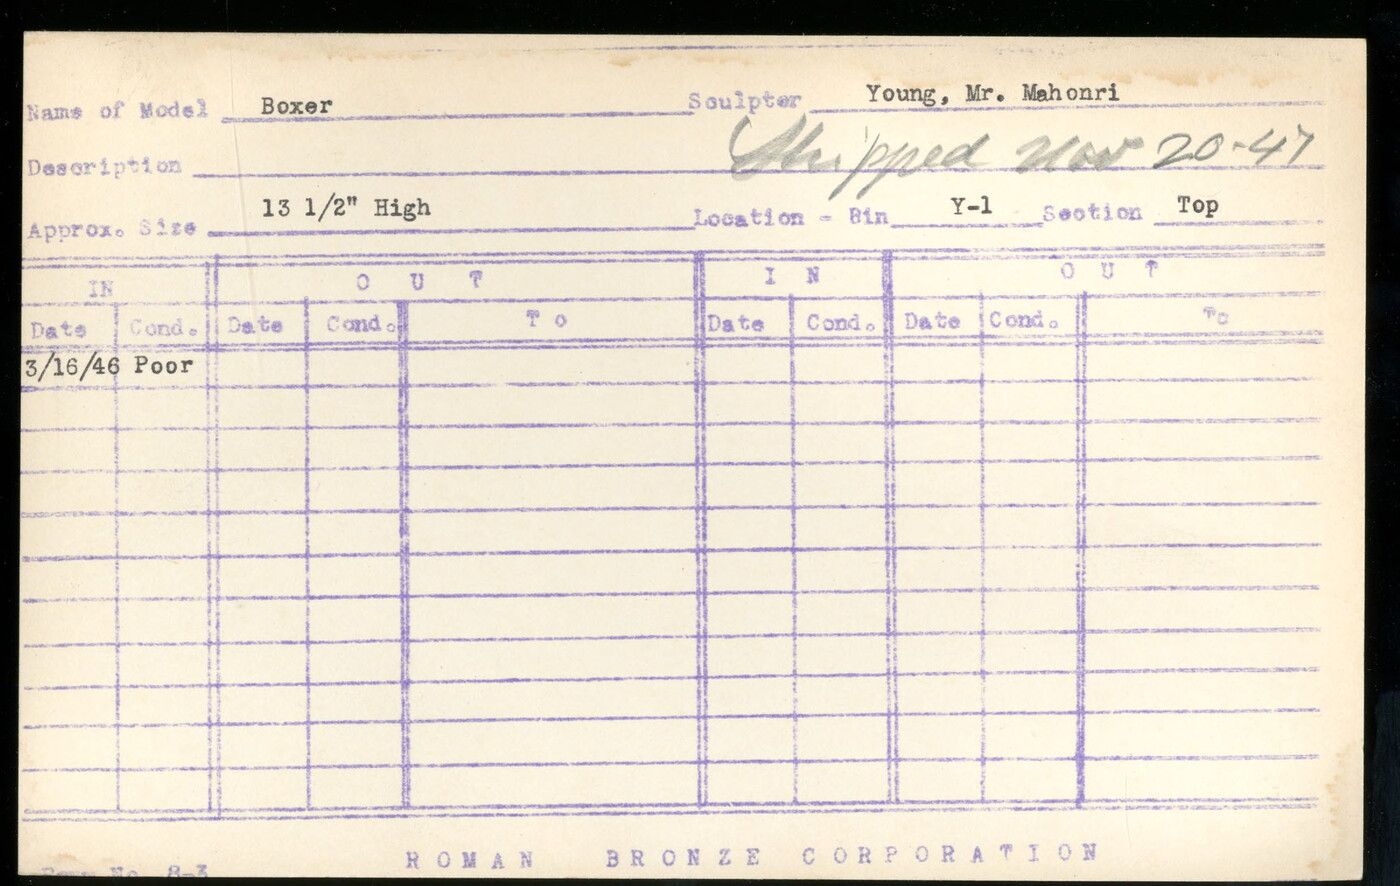 Name of Model Boxer Sculptor Young, Mr. Mahonri
Shipped Nov 20-47
Description
Approx. Size 13 1/2" High Location - Bin Y-1 Section Top
IN O U T I N O U T
Date Cond. Date Cond. To Date Cond. Date Cond. To
3/16/46 Poor
ROMAN BRONZE CORPORATION
Form No. 8-3